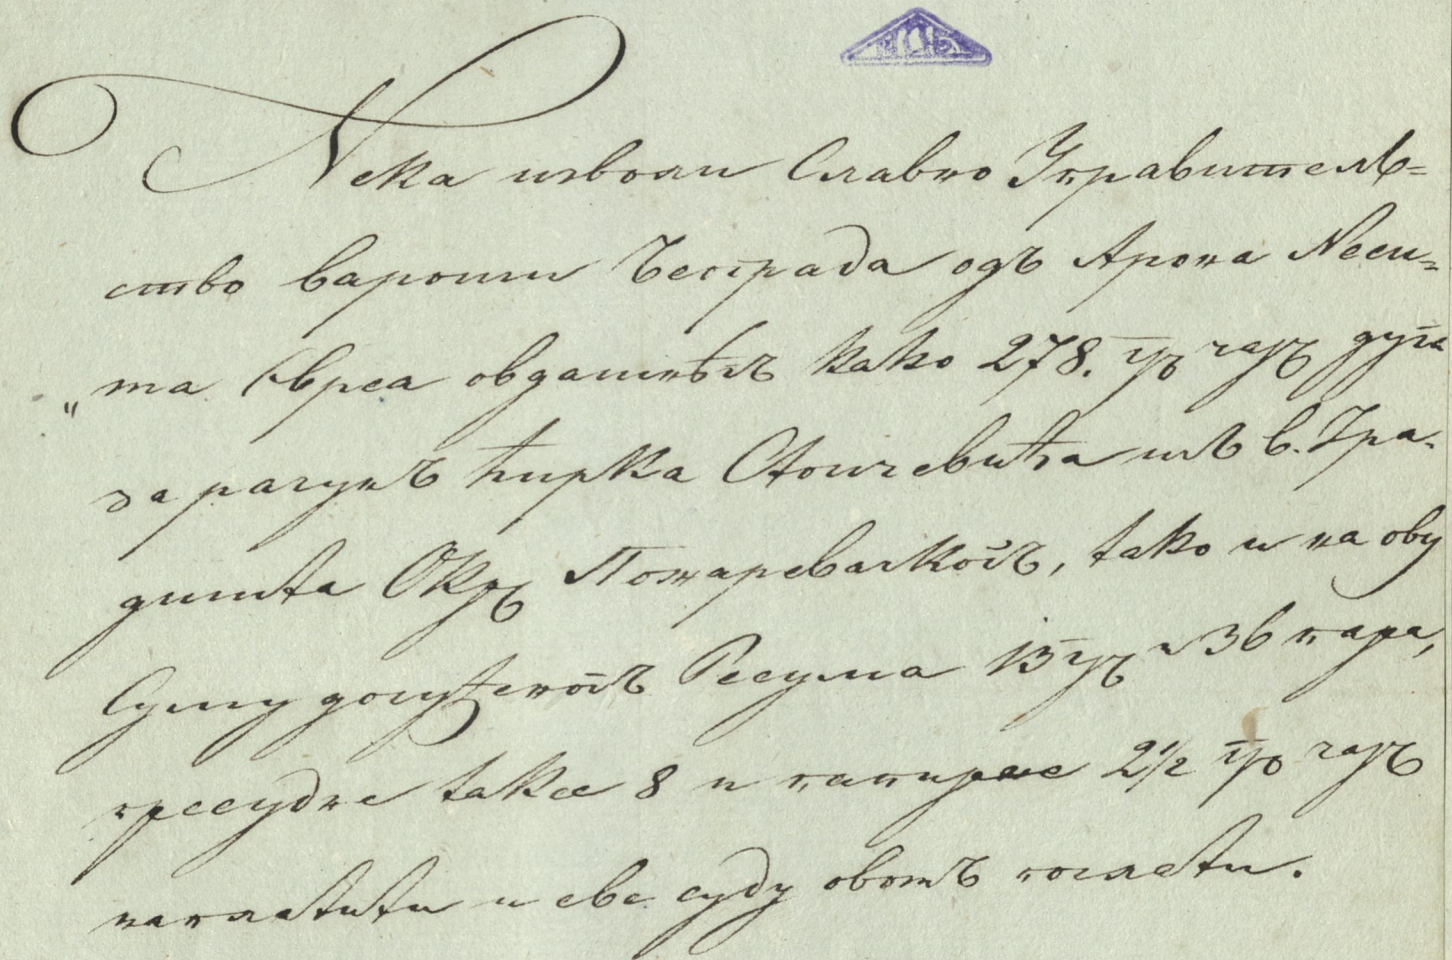 Нека изволи Славно Управитель=
ство вароши Београда одъ Арона Неси=
„та Евреа овдашнѣгъ како 278. гр чарш дуга
за рачунъ Ћирка Стоичевића изъ в. Гра-
дишта Окр Пожаревачкогъ, тако и на ову
Суму долазећегъ Ресума 13 гр и 36 пара,
пресудне таксе 8 и папирне 2 1/2 гр чарш
наплатити и све суду овомъ послати.